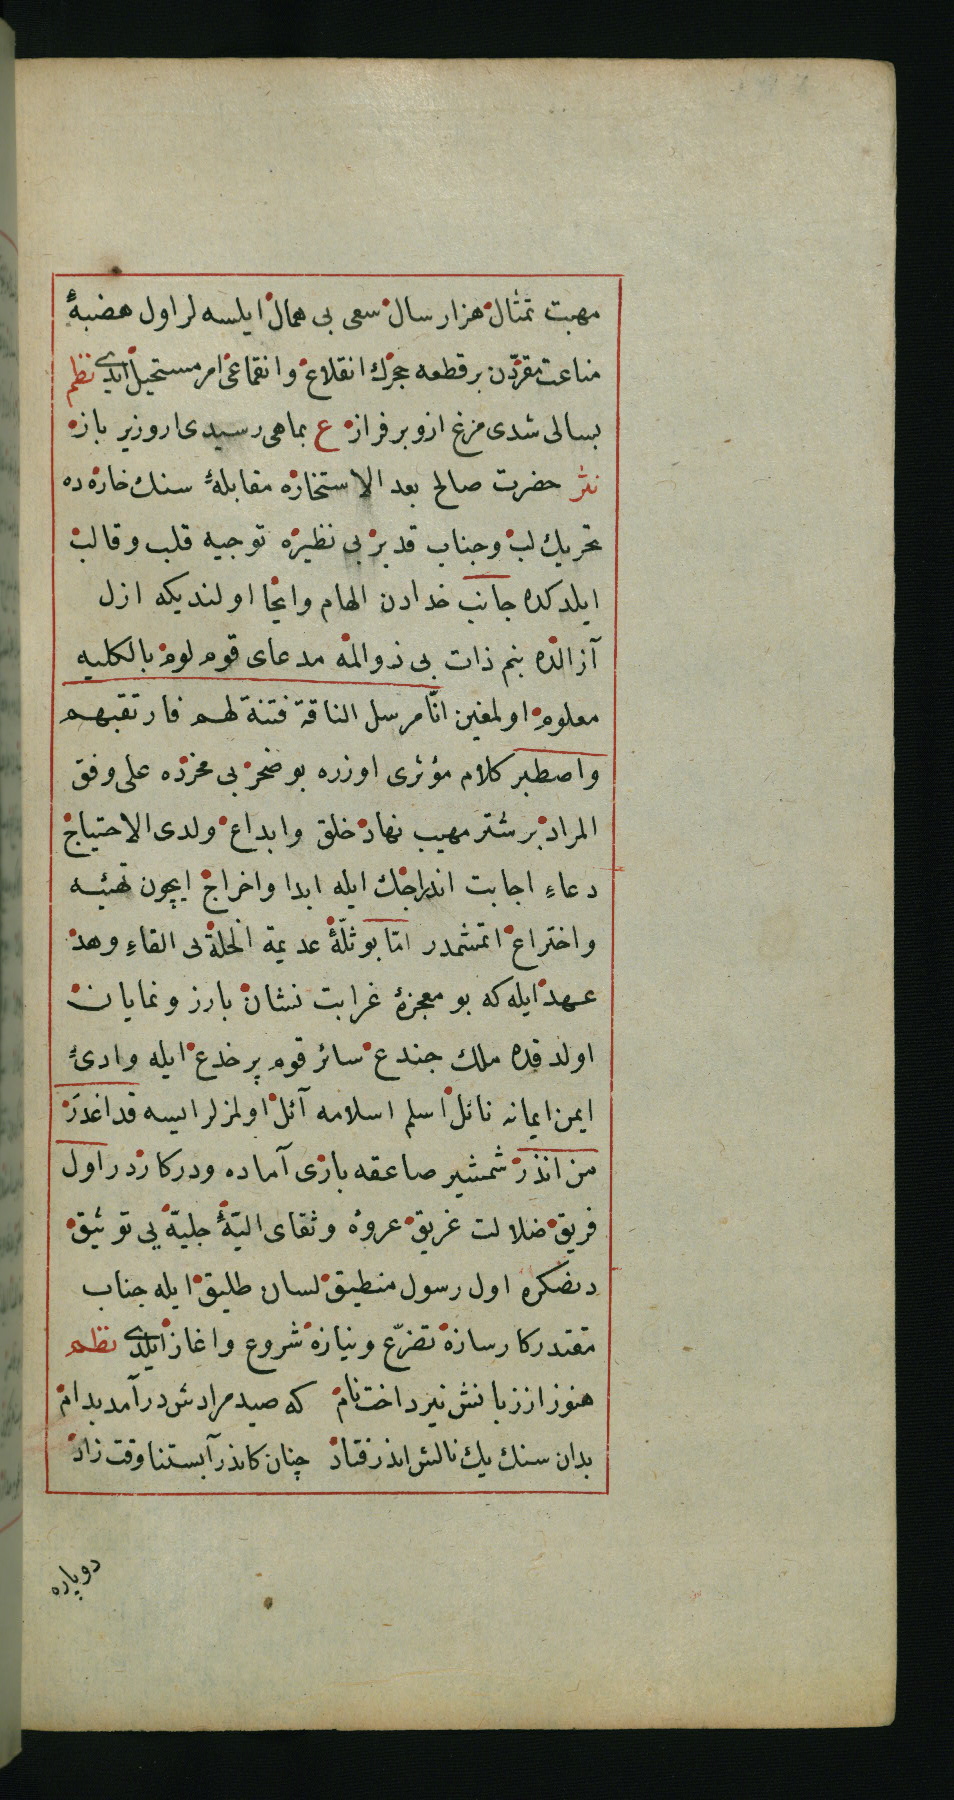 مهبت تمثال هزار سال سعی بی همال ایلسه لر اول هضبهٔ
مناعت مقردن بر قطعه حجرك انقلاع و انقماعی امر مستحیل ایدی نظم
بسالی شدی مرغ ازو بر فراز ع بماهی رسیدی اروزیر باز
نثر حضرت صالح بعد الاستخاره مقابلهٔ سنك خاره ده
تحریك لب و جناب قدیر بی نظیره توجیه قلب و قالب
ایلدکده جانب خدادن الهام و ایحا اولندیکه ازل
آزالده بنم ذات بی زوالمه مدعای قوم لوم بالکلیه
معلوم اولمغین انا مرسل الناقة فتنة لهم فارتقبهم
واصطبر کلام مؤثری اوزره بو صخر بی مخرده علی وفق
المراد بر شتر مهیب نهاد خلق و ابداع ولدی الاحتیاج
دعاء اجابت اندراجك ایله ابدا و اخراج ایچون تهیئه
و اختراع اتمشمدر اما بو ثلّهٔ عدیمة الخلة بی القاء وهد
عهد ایله که بو معجزهٔ غرابت نشان بارز و نمایان
اولدقده ملك جندع سائر قوم پر خدع ایله وادیٔ
ایمن ایمانه نائل اسلم اسلامه آئل اولمزلر ایسه قد اعذر
من انذر شمشیر صاعقه باری آماده و درکاردر اول
فریق ضلالت غریق عروهٔ وثقای الیّهٔ جلیهٔ بی توثیق
دنصکره اول رسول منطیق لسان طلیق ایله جناب
مقتدر کارسازه تضرع و نیازه شروع و اغاز ایلدی نظم
هنوز از زبانش نپرداخت نام که صید مرادش درآمد بدام
بدان سنك یك نالش اندر فتاد چنان کاندر آبستنا وقت زاد
دوپاره